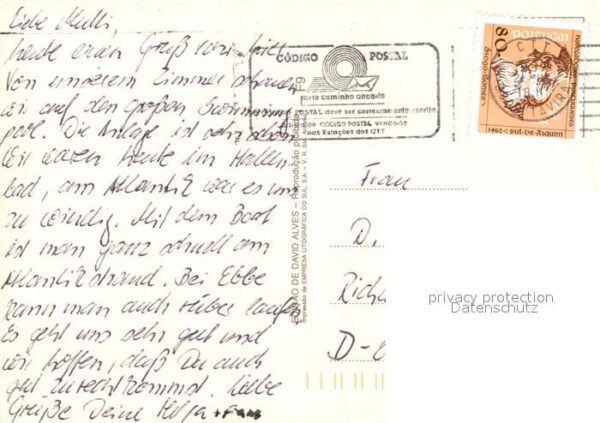 Liebe Mutti,
heute einen Gruß von hier.
Von unserem Zimmer schauen
wir auf den großen Swimming
pool. Die Anlage ist sehr schön
Wir waren heute im Hallen
bad, am Atlantik war es uns
zu windig. Mit dem Boot
ist man ganz schnell am
Atlantikstrand. Bei Ebbe
kann man auch rüber laufen
Es geht uns sehr gut und
wir hoffen, daß Du auch
gut zurecht kommst. Liebe
Grüße Deine Helga
CÓDIGO POSTAL
meio caminho andado
POSTAL deve ser correctamente escrito
CÓDIGO POSTAL vende-se
nas Estações dos CTT
F9
EDIÇÃO DE DAVID ALVES — Reprodução proibida
Impressão da EMPRESA LITOGRÁFICA DO SUL, S.A. — V. R. Sto. António
PORTUGAL
80
CTT
TAVIRA
Frau
D.
Rich
D-
privacy protection
Datenschutz